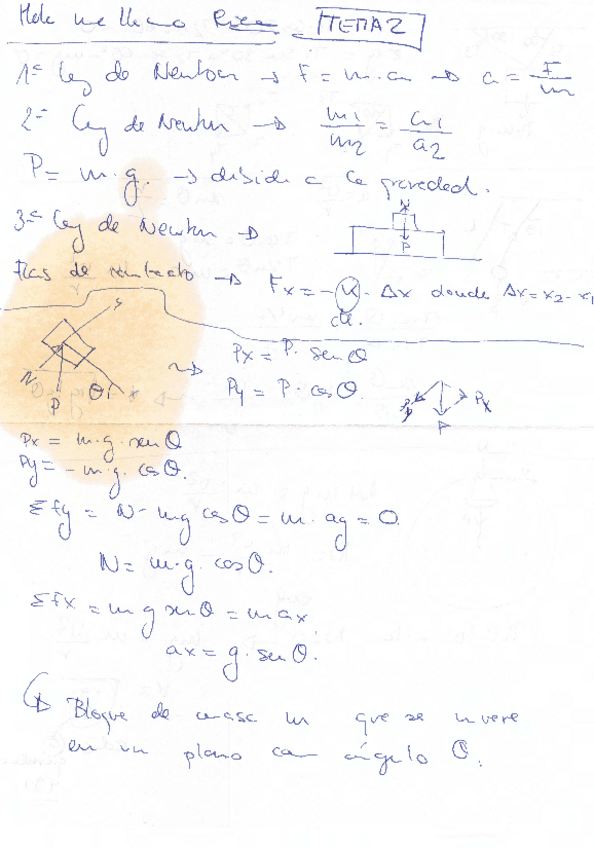 Hola me llamo TEMA 2
1ª ley de Newton → F = m·a → a = F/m
2ª ley de Newton → m1/m2 = a1/a2
P = m·g. → debido a la gravedad.
3ª ley de Newton → N P
Fzas de contacto → Fx = -K·Δx donde Δx = x2 - x1
cte.
N P θ x → Px = P·senθ
Py = P·cosθ. Px P
Px = m·g·senθ
Py = -m·g·cosθ.
Σfy = N - mg cosθ = m·ay = 0
N = m·g·cosθ.
Σfx = m g senθ = m ax
ax = g·senθ.
Bloque de masa m que se mueve
en un plano con ángulo θ.